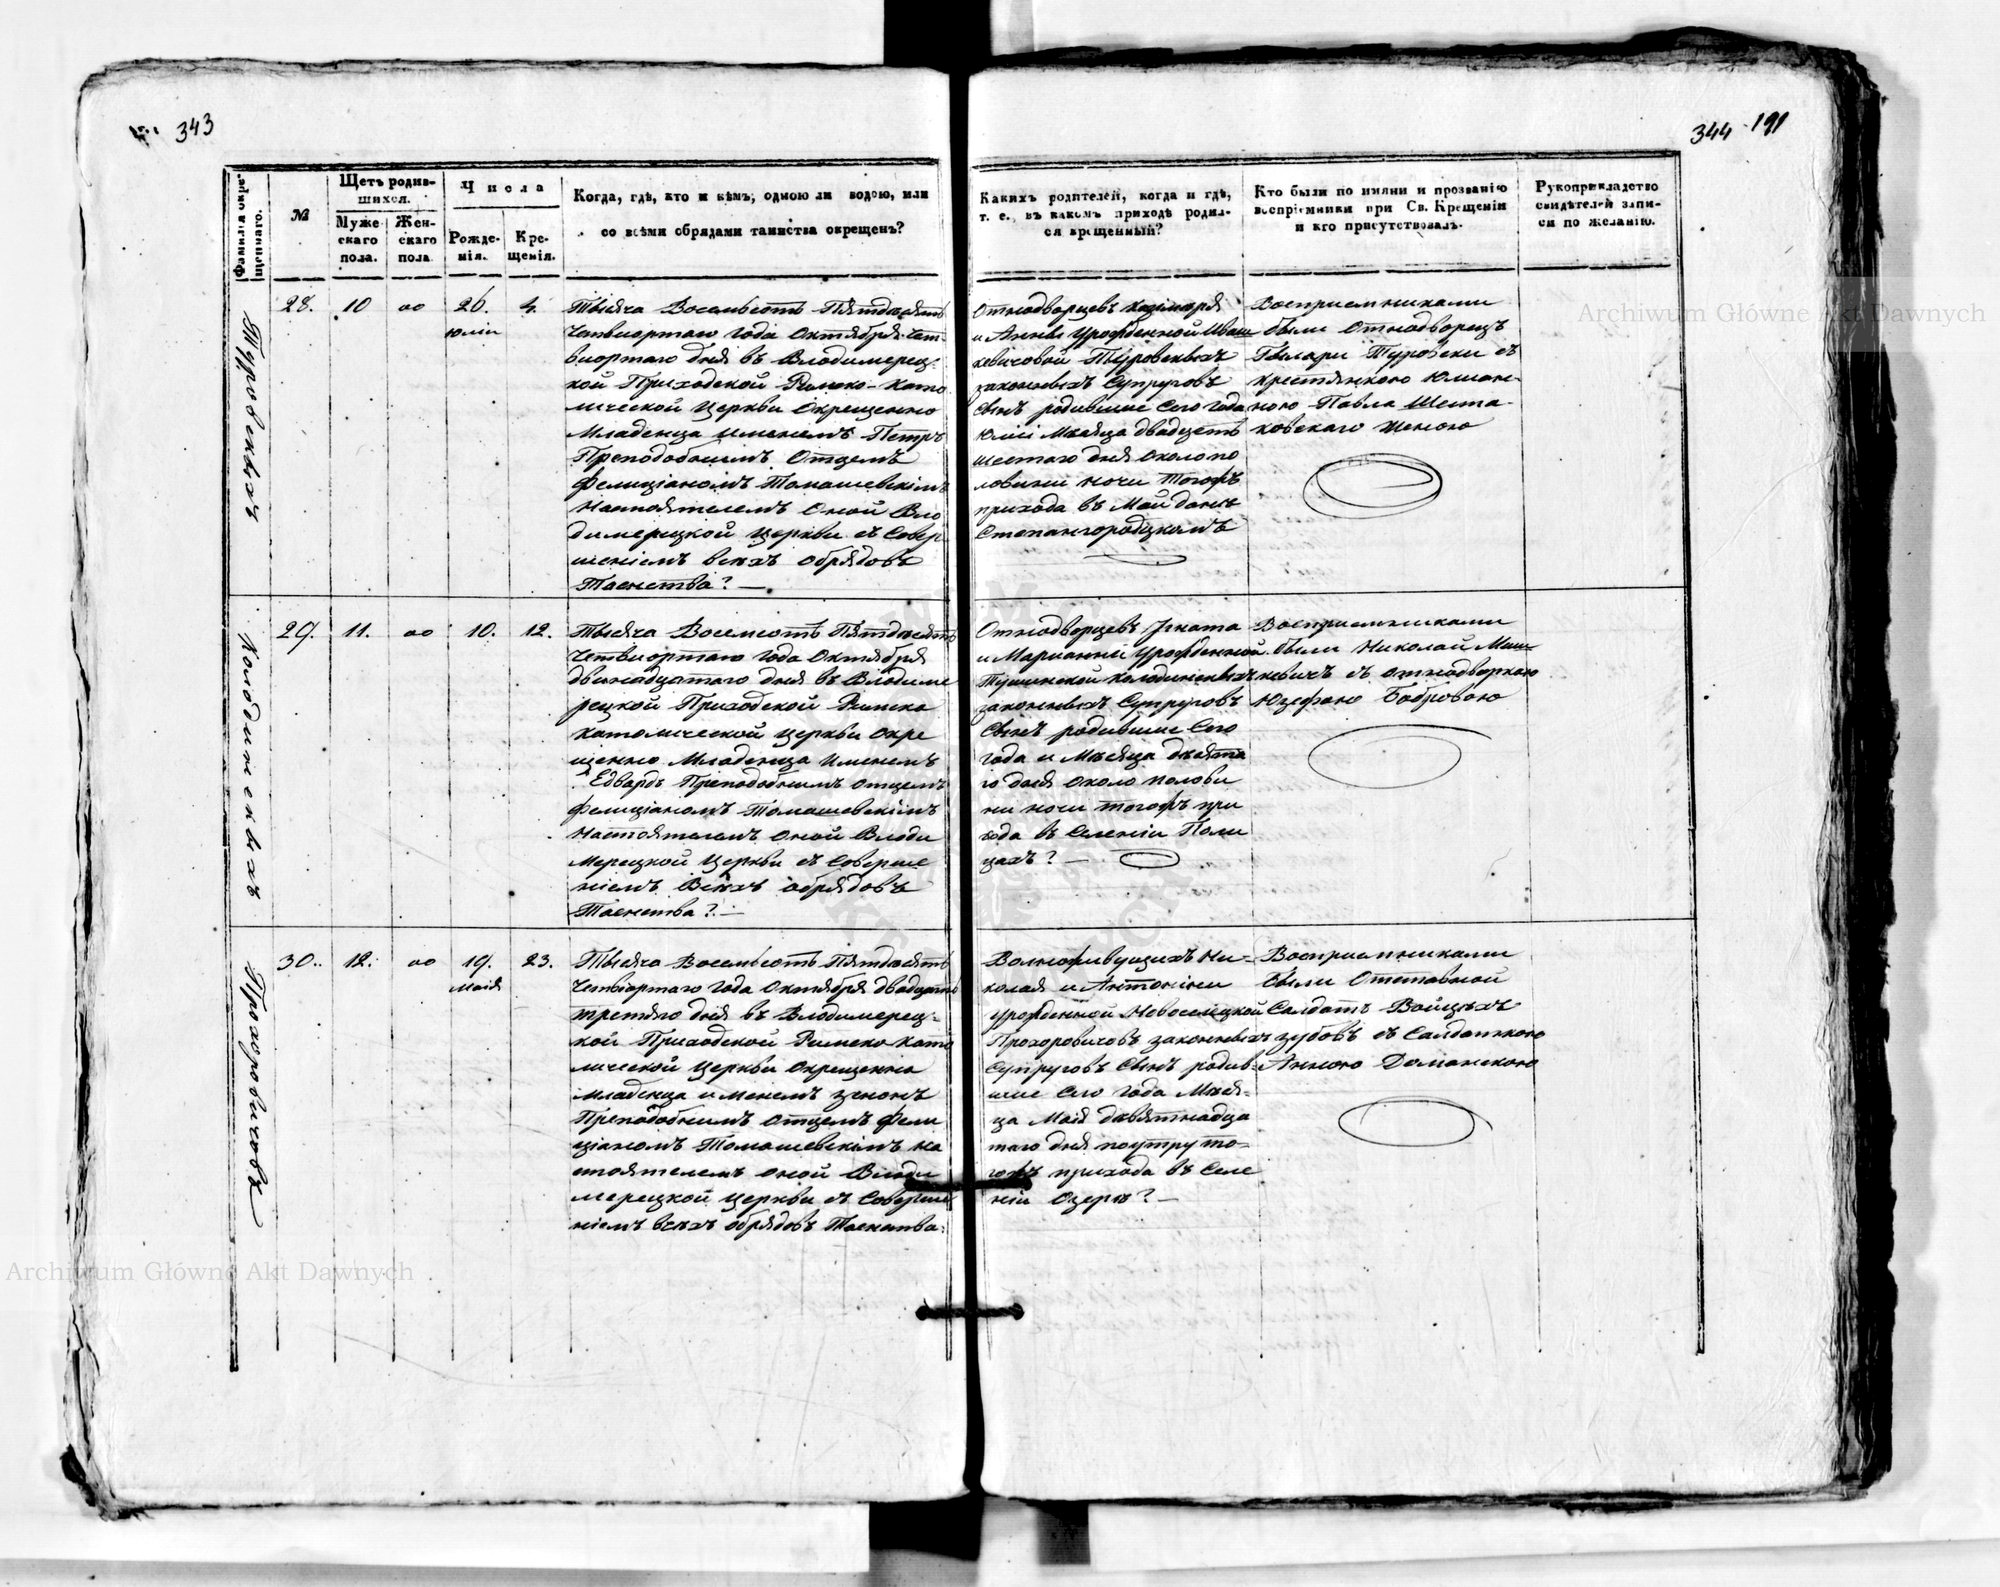 343
344 191
Фамилія окре-
щеннаго.
№
Щетъ родив-
шихся.
Муже-
скаго
пола.
Жен-
скаго
пола
Числа
Рожде-
нія.
Кре-
щенія.
Когда, гдѣ, кто и кѣмъ, одною ли водою, или
со всѣми обрядами таинства окрещенъ?
Какихъ родителей, когда и гдѣ,
т. е. въ какомъ приходѣ родил-
ся крещенный?
Кто были по имяни и прозванію
воспріемники при Св. Крещеніи
и кто присутствовалъ.
Рукоприкладство
свидѣтелей запи-
си по желанію.
Туровскихъ
28. 10 оо 26. 4.
юлія
Тысяча Восемьсотъ Пятдесятъ
Четвіортаго года Октября Чет-
віортаго дня въ Влодимерец-
кой Приходской Римско-Като
лической Церкви Окрещенно
Младенца Именемъ Петръ
Преподобнимъ Отцемъ
Фелиціаномъ Томашевскімъ
Настоятелемъ Оной Вло
димерецкой Церкви съ Совер
шеніемъ всѣхъ обрядовъ
Таенства? —
Отнодворцевъ Казіміра
и Анны Урожденной Иваш
кевичовой Туровскихъ
законныхъ Супруговъ
Сынъ родившие Сего года
Юлія Мѣсяца двадцеть
шестаго дня около по
ловини ночи Тогожъ
прихода въ Майданѣ
Степангородцкомъ
Восприемниками
были Отнодворецъ
Гвіляри Туровски съ
крестянкою Юлиан-
ною Павла Шеста-
ковскаго Женою
Колодинскихъ
29. 11. оо 10. 12.
Тысяча Восемсотъ Пятдесятъ
Четвіортаго года Октября
двинадцатаго дня въ Влодиме
рецкой Приходской Римско
Католической Церкви Окре
щенно Младенца Именемъ
Едвардъ Преподобнимъ Отцемъ
Фелиціаномъ Томашевскімъ
Настоятелемъ Оной Влоди
Мерецкой Церкви съ Соверше
ніемъ Всѣхъ обрядовъ
Таенства? —
Отнодворцевъ Игната
и Марианни Урожденной
Тушинской Колодинскихъ
законныхъ Супруговъ
Сынъ родившие Сего
года и Мѣсяца десята
го дня Около полови
ни ночи тогожъ при
хода въ Селеніи Поли
цахъ? —
Восприемниками
были Николай Миш-
кевичъ съ Отнодворкою
Юзефою Бобровою
Прохоровичовъ
30. 12. оо 19. 23.
Маія
Тысяча Восемьсотъ Пятдесятъ
Четвіортаго года Октября двадцать
третяго дня въ Влодимерец-
кой Приходской Римско Като
лической Церкви Окрещенно
младенца именемъ Зенонъ
Преподобнимъ Отцемъ Фели
ціаномъ Томашевскімъ На
стоятелемъ оной Влоди
мерецкой Церкви съ Соверше
ніемъ всѣхъ обрядовъ Таенства.
Вольноживущихъ Ни-
колая и Антоніни
урожденной Новоселецкой
Прохоровичовъ законныхъ
Супруговъ Сынъ родив-
шие Сего года Мѣся-
ца Маія девятнадца
таго дня поутру то-
гожъ прихода въ Селе
ніи Озеро? —
Восприемниками
были Отставной
Солдатъ Войцѣхъ
Зубовъ съ Салдаткою
Анною Доманскою
Archiwum Główne Akt Dawnych
Archiwum Główne Akt Dawnych